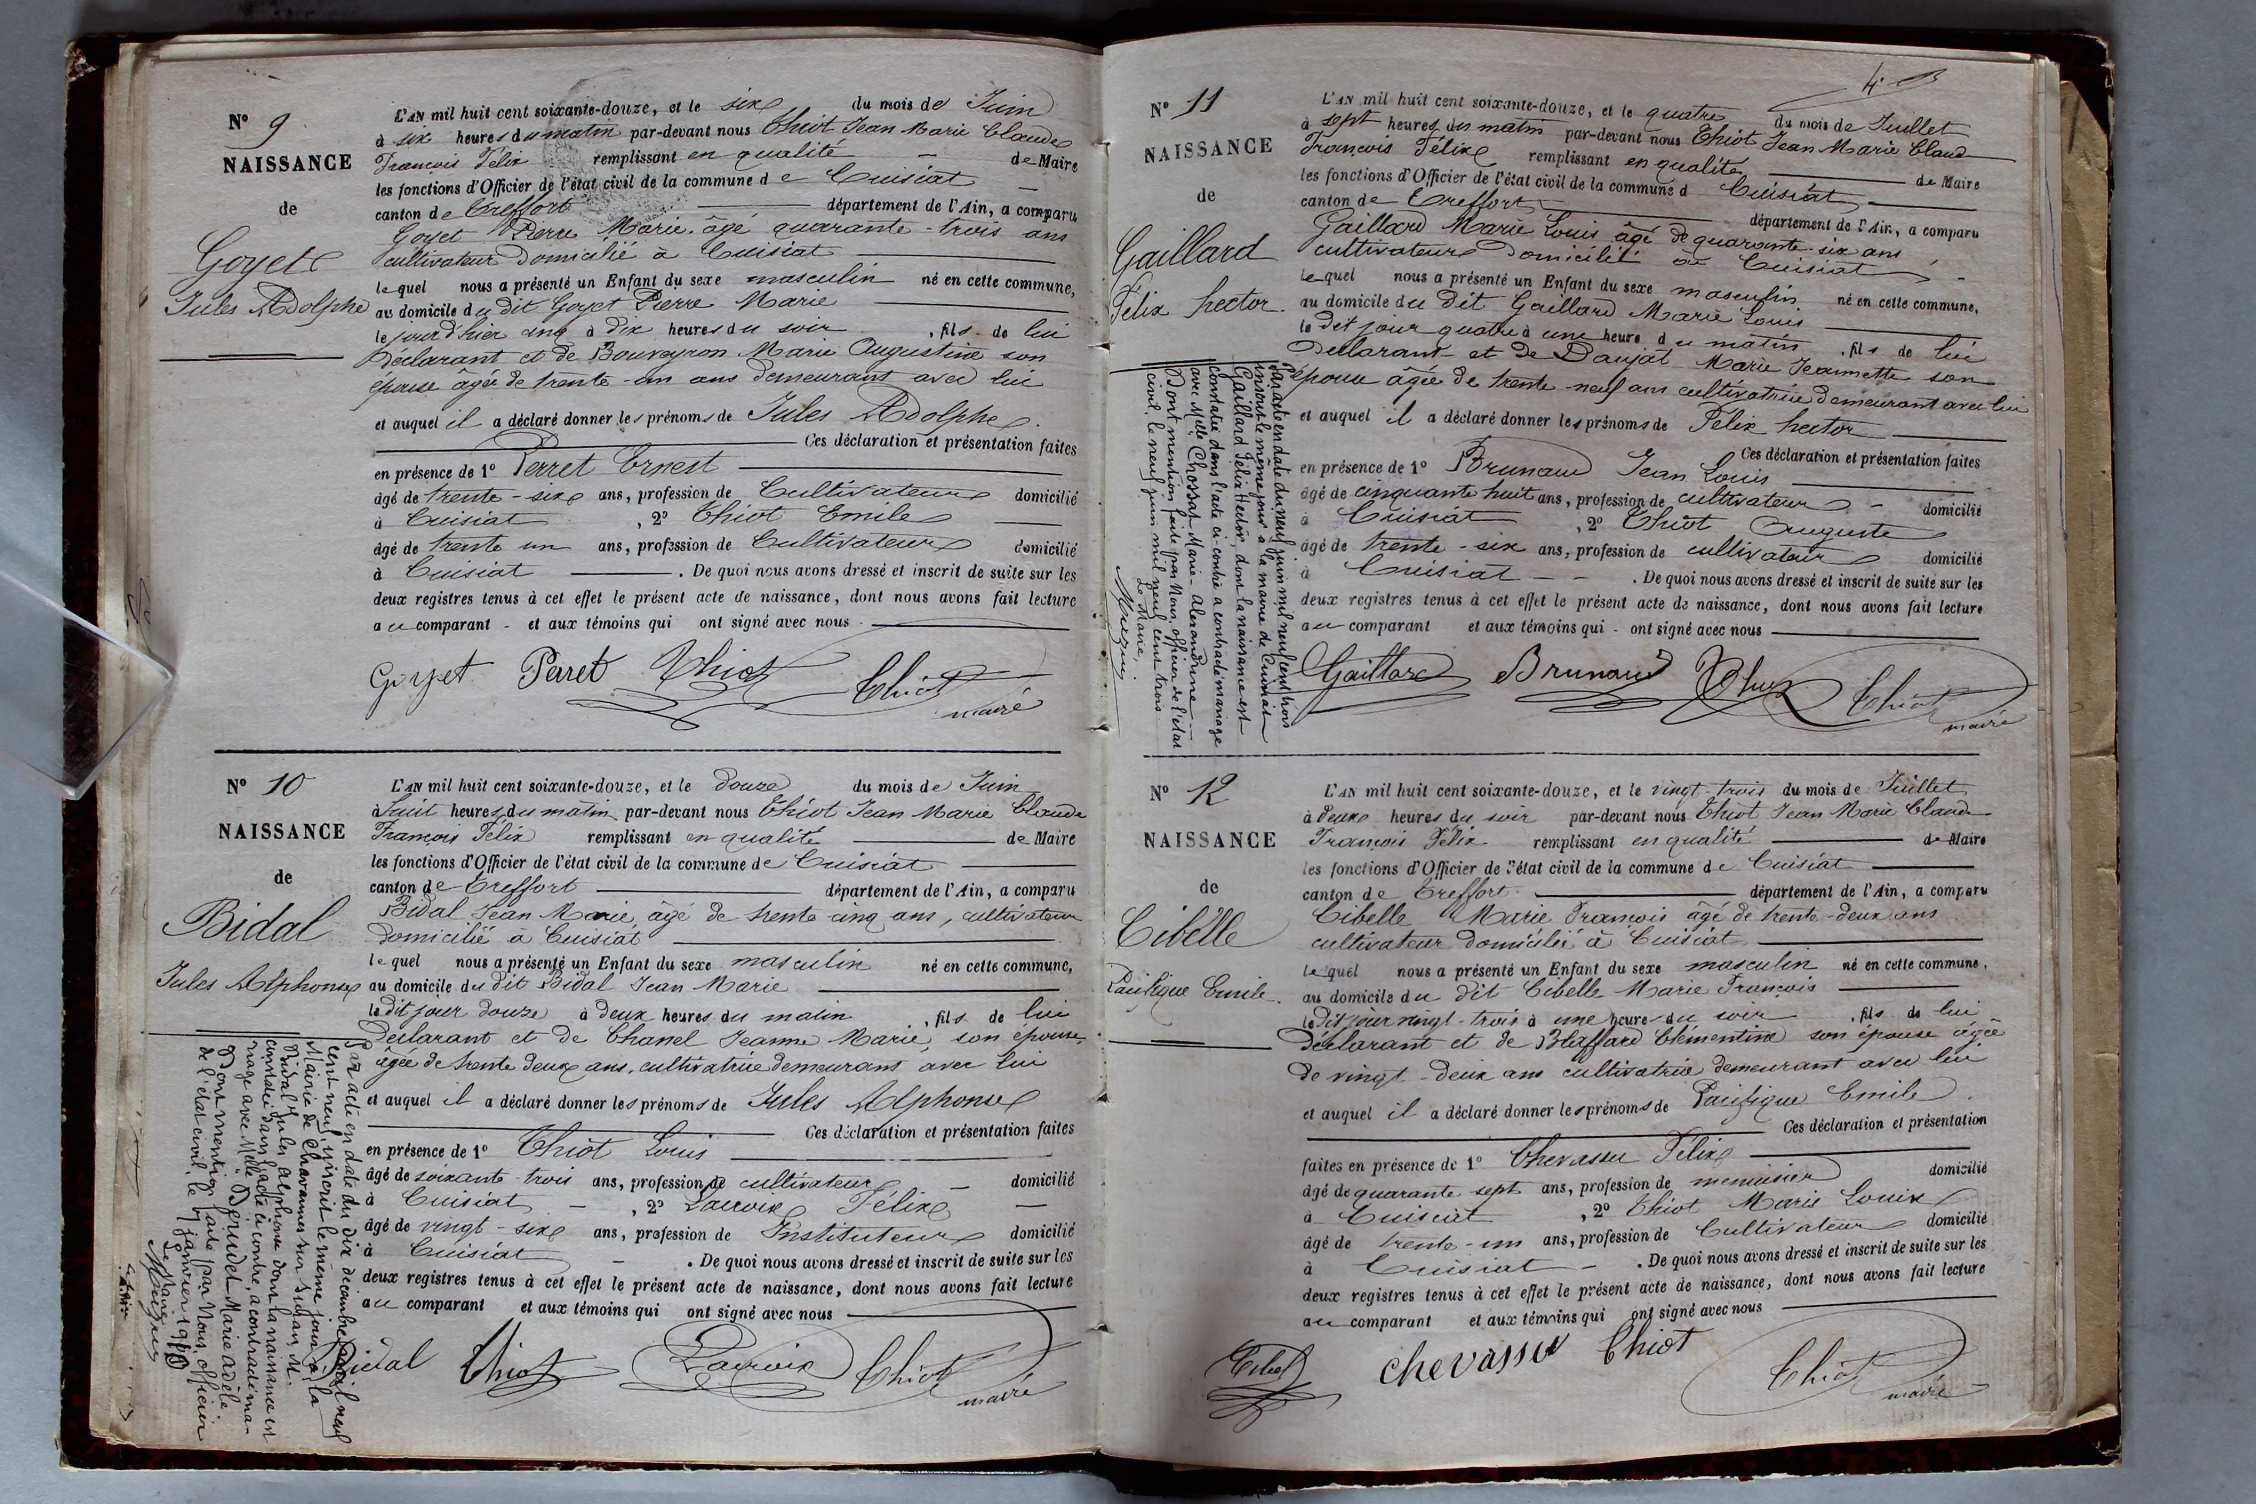 N° 9
NAISSANCE
de
Goyet
Jules Adolphe
L'AN mil huit cent soixante-douze, et le six du mois de Juin
à six heures du matin par-devant nous Thiot Jean Marie Claude
François Félix remplissant en qualité de Maire
les fonctions d'Officier de l'état civil de la commune de Cuisiat
canton de Treffort département de l'Ain, a comparu
Goyet Pierre Marie âgé quarante-trois ans
cultivateur domicilié à Cuisiat
lequel nous a présenté un Enfant du sexe masculin né en cette commune,
au domicile du dit Goyet Pierre Marie
le jour d'hier cinq à dix heures du soir, fils de lui
Déclarant et de Bouveyron Marie Augustine son
épouse âgée de trente-un ans demeurant avec lui
et auquel il a déclaré donner les prénoms de Jules Adolphe.
Ces déclaration et présentation faites
en présence de 1° Perret Ernest
âgé de trente-six ans, profession de Cultivateur domicilié
à Cuisiat, 2° Thiot Emile
âgé de trente un ans, profession de Cultivateur domicilié
à Cuisiat. De quoi nous avons dressé et inscrit de suite sur les
deux registres tenus à cet effet le présent acte de naissance, dont nous avons fait lecture
au comparant - et aux témoins qui ont signé avec nous
Goyet Perret Thiot Thiot
maire
N° 10
NAISSANCE
de
Bidal
Jules Alphonse
L'AN mil huit cent soixante-douze, et le douze du mois de Juin
à huit heures du matin par-devant nous Thiot Jean Marie Claude
François Félix remplissant en qualité de Maire
les fonctions d'Officier de l'état civil de la commune de Cuisiat
canton de Treffort département de l'Ain, a comparu
Bidal Jean Marie, âgé de trente cinq ans, cultivateur
domicilié à Cuisiat
lequel nous a présenté un Enfant du sexe masculin né en cette commune,
au domicile du dit Bidal Jean Marie
le dit jour douze à deux heures du matin, fils de lui
Déclarant et de Chanel Jeanne Marie, son épouse,
âgée de trente deux ans, cultivatrice demeurant avec lui
et auquel il a déclaré donner les prénoms de Jules Alphonse
Ces déclaration et présentation faites
en présence de 1° Thiot Louis
âgé de soixante-trois ans, profession de cultivateur domicilié
à Cuisiat, 2° Lacroix Félix
âgé de vingt-six ans, profession de Instituteur domicilié
à Cuisiat. De quoi nous avons dressé et inscrit de suite sur les
deux registres tenus à cet effet le présent acte de naissance, dont nous avons fait lecture
au comparant et aux témoins qui ont signé avec nous
Bidal Thiot Lacroix Thiot
maire
Par acte en date du dix décembre mil neuf
cent neuf, inscrit le même jour à la
Mairie de Chavannes sur Suran, M.
Bidal Jules Alphonse dont la naissance est
constatée dans l'acte ci-contre, a contracté ma-
riage avec Melle Bernadet Marie Adèle.
Dont mention faite par Nous, officier
de l'état civil, le 7 janvier 1910
Le Maire,
4
N° 11
NAISSANCE
de
Gaillard
Félix hector.
L'AN mil huit cent soixante-douze, et le quatre du mois de Juillet
à sept heures du matin par-devant nous Thiot Jean Marie Claude
François Félix remplissant en qualité de Maire
les fonctions d'Officier de l'état civil de la commune d Cuisiat
canton de Treffort département de l'Ain, a comparu
Gaillard Marie Louis âgé de quarante-six ans
cultivateur domicilié à Cuisiat
lequel nous a présenté un Enfant du sexe masculin né en cette commune,
au domicile du dit Gaillard Marie Louis
le dit jour quatre à une heure du matin, fils de lui
Déclarant et de Daujat Marie Jeannette son
épouse âgée de trente-neuf ans cultivatrice demeurant avec lui
et auquel il a déclaré donner les prénoms de Félix hector
Ces déclaration et présentation faites
en présence de 1° Brunaud Jean Louis
âgé de cinquante huit ans, profession de cultivateur domicilié
à Cuisiat, 2° Thiot Auguste
âgé de trente-six ans, profession de cultivateur domicilié
à Cuisiat. De quoi nous avons dressé et inscrit de suite sur les
deux registres tenus à cet effet le présent acte de naissance, dont nous avons fait lecture
au comparant et aux témoins qui - ont signé avec nous
Gaillard Brunaud Thiot Thiot
maire
Par acte en date du neuf juin mil neuf cent trois
inscrit le même jour à la mairie de Cuisiat
Gaillard Félix Hector, dont la naissance est
constatée dans l'acte ci-contre a contracté mariage
avec Melle Chossat Marie-Alexandrine
Dont mention faite par Nous, officier de l'état
civil, le neuf juin mil neuf cent trois
Le Maire,
N° 12
NAISSANCE
de
Cibelle
Pacifique Emile.
L'AN mil huit cent soixante-douze, et le vingt-trois du mois de Juillet
à deux heures du soir par-devant nous Thiot Jean Marie Claude
François Félix remplissant en qualité de Maire
les fonctions d'Officier de l'état civil de la commune de Cuisiat
canton de Treffort département de l'Ain, a comparu
Cibelle Marie François âgé de trente-deux ans
cultivateur domicilié à Cuisiat
lequel nous a présenté un Enfant du sexe masculin né en cette commune,
au domicile du dit Cibelle Marie François
le dit jour vingt-trois à une heure du soir, fils de lui
déclarant et de Blaffard Clémentine son épouse âgée
de vingt-deux ans cultivatrice demeurant avec lui
et auquel il a déclaré donner les prénoms de Pacifique Emile
Ces déclaration et présentation
faites en présence de 1° Chevassu Félix
âgé de quarante sept ans, profession de menuisier domicilié
à Cuisiat, 2° Thiot Marie Louis
âgé de trente-un ans, profession de Cultivateur domicilié
à Cuisiat. De quoi nous avons dressé et inscrit de suite sur les
deux registres tenus à cet effet le présent acte de naissance, dont nous avons fait lecture
au comparant et aux témoins qui ont signé avec nous
Chevassu Thiot Thiot
maire